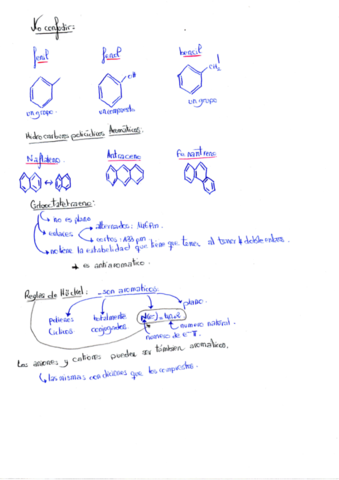 No confundir:
fenil fenol bencil
OH CH₂
un grupo un compuesto un grupo
Hidrocarburos policíclicos Aromáticos:
Naftaleno Antraceno Fenantreno
Ciclooctatetraeno:
no es plano
enlaces alternados: pm
cortos: pm
no tiene la estabilidad que tiene que tener al tener 4 dobles enlaces
→ es antiaromatico
Reglas de Hückel: son aromaticos:
plano
polienos totalmente
Ciclicos conjugados numero natural.
numero de e⁻ π.
Los aniones y cationes pueden ser también aromaticos,
las mismas condiciones que los compuestos.